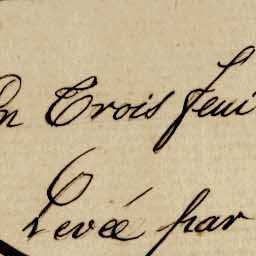 En Trois Feui
Levée par